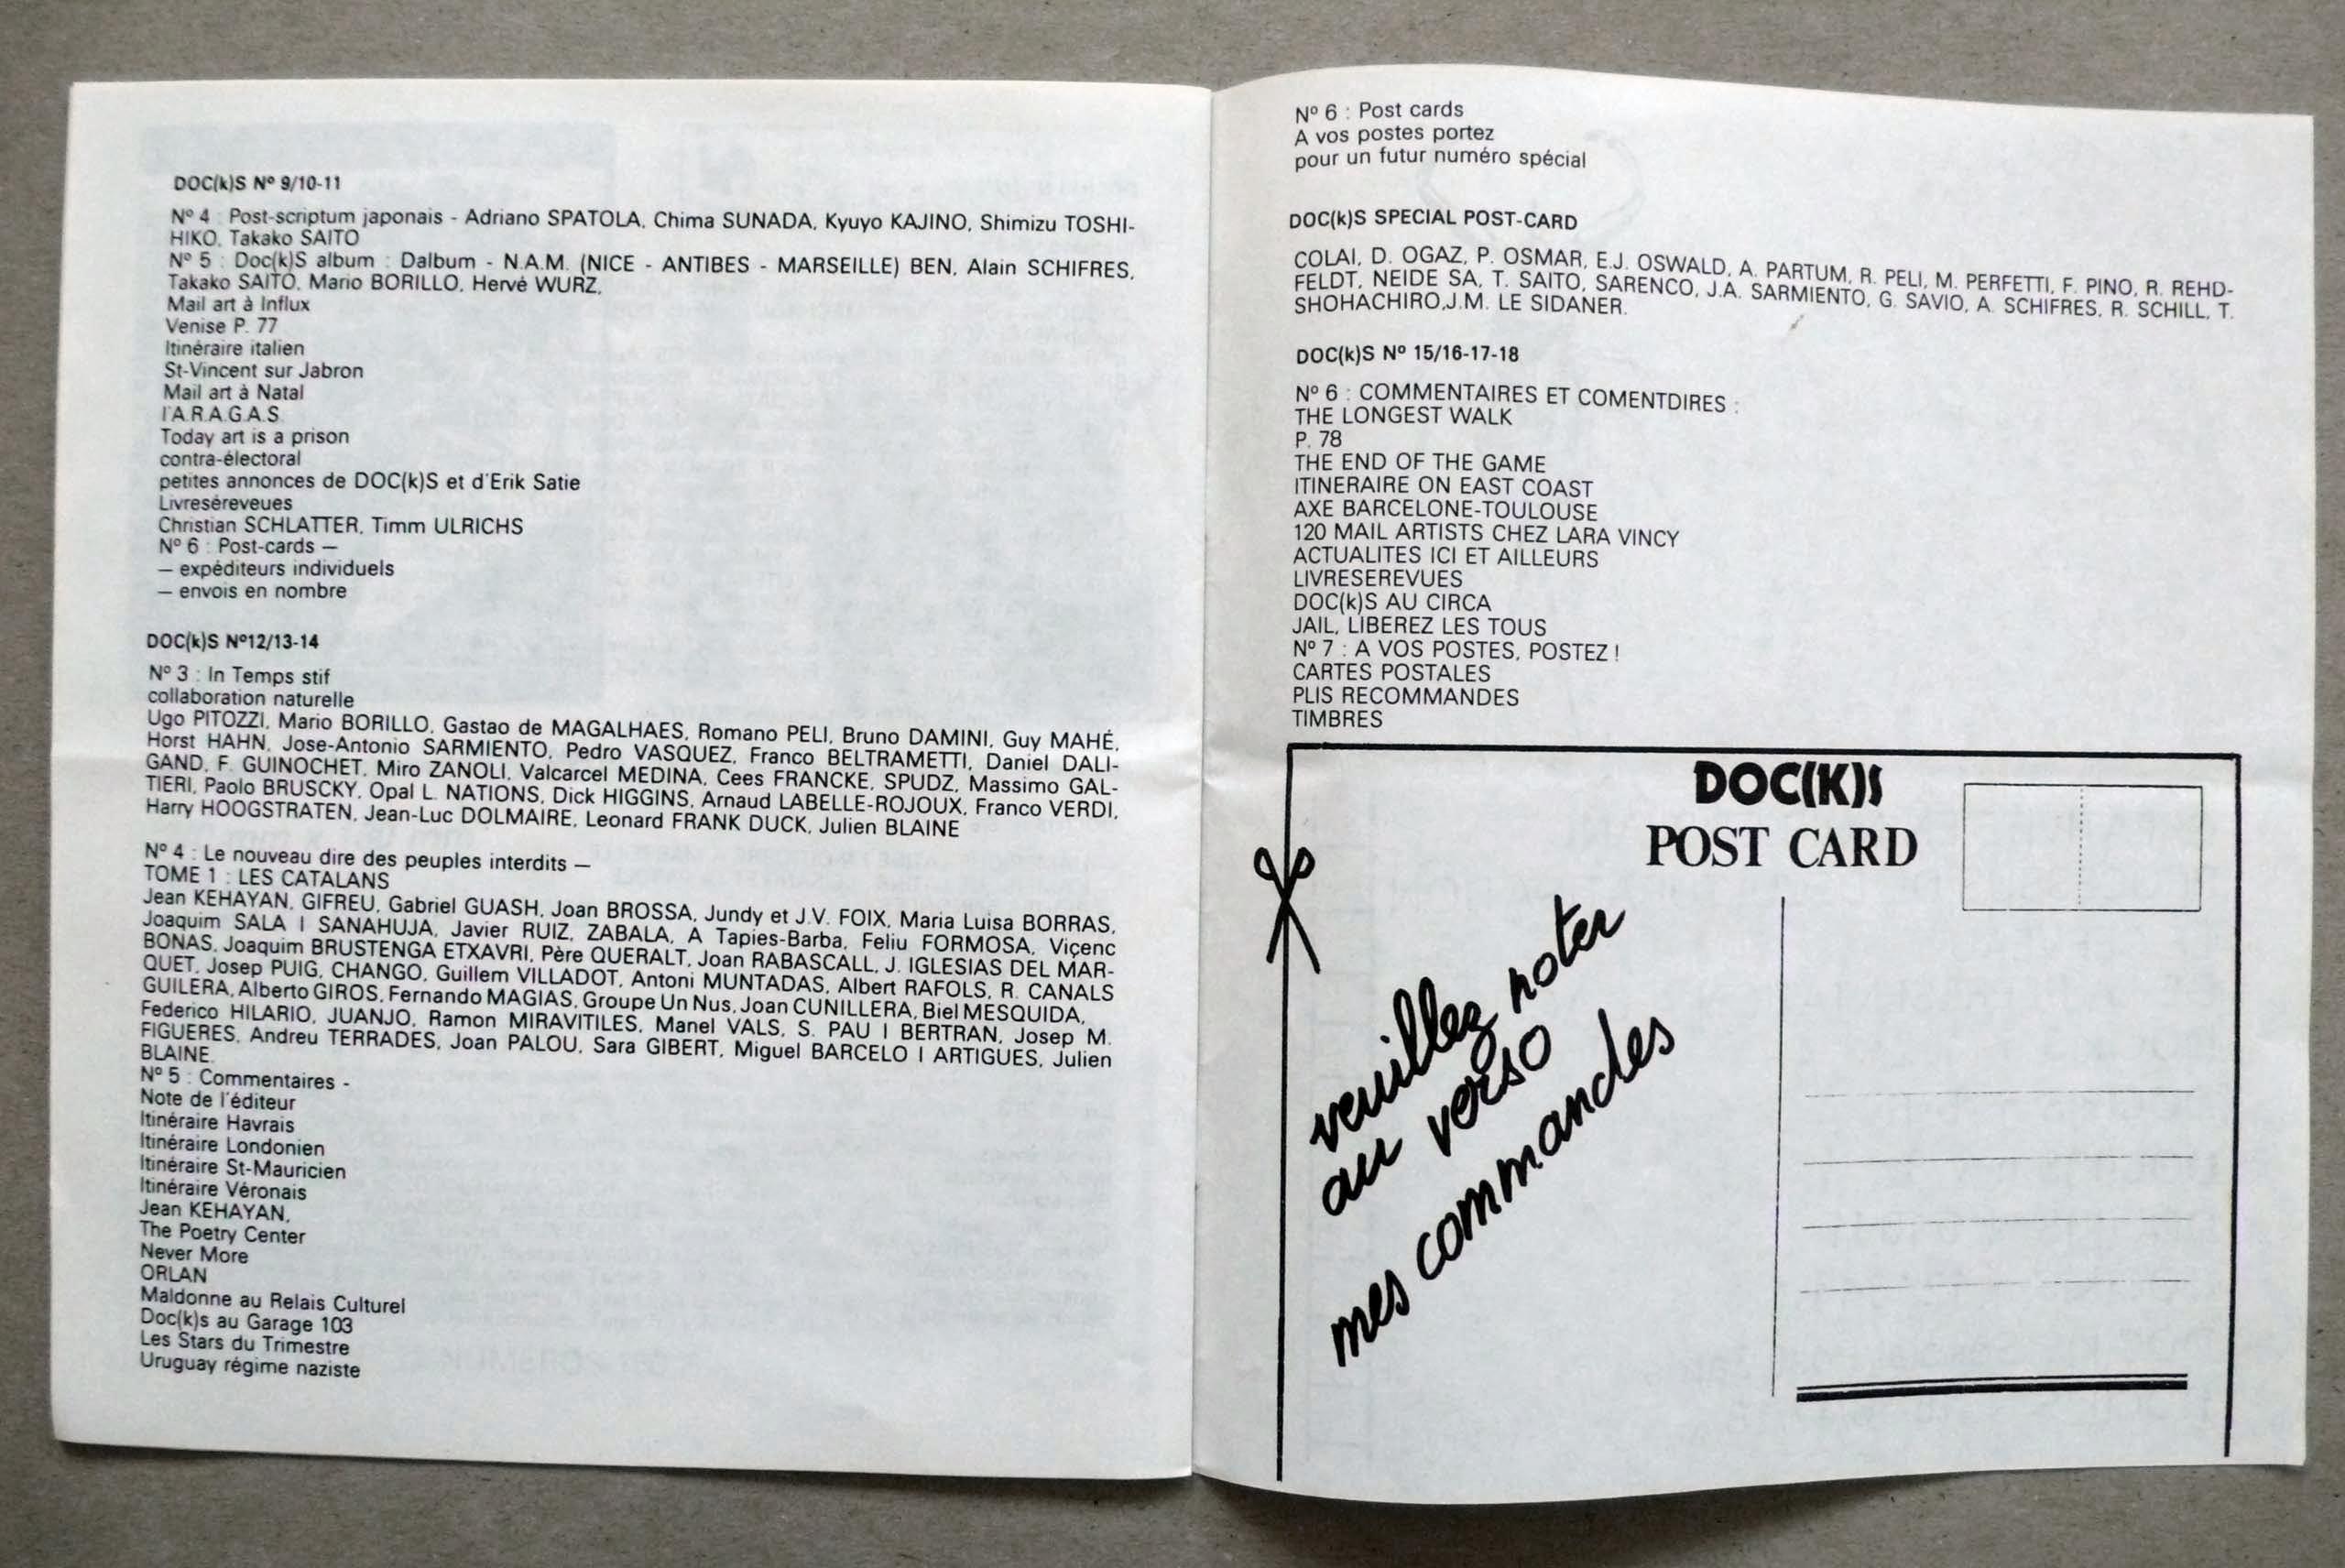 DOC(k)S Nº 9/10-11
Nº 4 : Post-scriptum japonais - Adriano SPATOLA, Chima SUNADA, Kyuyo KAJINO, Shimizu TOSHI-
HIKO, Takako SAITO
Nº 5 : Doc(k)S album : Dalbum - N.A.M. (NICE - ANTIBES - MARSEILLE) BEN, Alain SCHIFRES,
Takako SAITO, Mario BORILLO, Hervé WURZ,
Mail art à Influx
Venise P. 77
Itinéraire italien
St-Vincent sur Jabron
Mail art à Natal
l'A.R.A.G.A.S.
Today art is a prison
contra-électoral
petites annonces de DOC(k)S et d'Erik Satie
Livreséreveues
Christian SCHLATTER, Timm ULRICHS
Nº 6 : Post-cards —
— expéditeurs individuels
— envois en nombre
DOC(k)S Nº12/13-14
Nº 3 : In Temps stif
collaboration naturelle
Ugo PITOZZI, Mario BORILLO, Gastao de MAGALHAES, Romano PELI, Bruno DAMINI, Guy MAHÉ,
Horst HAHN, Jose-Antonio SARMIENTO, Pedro VASQUEZ, Franco BELTRAMETTI, Daniel DALI-
GAND, F. GUINOCHET, Miro ZANOLI, Valcarcel MEDINA, Cees FRANCKE, SPUDZ, Massimo GAL-
TIERI, Paolo BRUSCKY, Opal L. NATIONS, Dick HIGGINS, Arnaud LABELLE-ROJOUX, Franco VERDI,
Harry HOOGSTRATEN, Jean-Luc DOLMAIRE, Leonard FRANK DUCK, Julien BLAINE
Nº 4 : Le nouveau dire des peuples interdits —
TOME 1 : LES CATALANS
Jean KEHAYAN, GIFREU, Gabriel GUASH, Joan BROSSA, Jundy et J.V. FOIX, Maria Luisa BORRAS,
Joaquim SALA I SANAHUJA, Javier RUIZ, ZABALA, A Tapies-Barba, Feliu FORMOSA, Viçenc
BONAS, Joaquim BRUSTENGA ETXAVRI, Père QUERALT, Joan RABASCALL, J. IGLESIAS DEL MAR-
QUET, Josep PUIG, CHANGO, Guillem VILLADOT, Antoni MUNTADAS, Albert RAFOLS, R. CANALS
GUILERA, Alberto GIROS, Fernando MAGIAS, Groupe Un Nus, Joan CUNILLERA, Biel MESQUIDA,
Federico HILARIO, JUANJO, Ramon MIRAVITILES, Manel VALS, S. PAU I BERTRAN, Josep M.
FIGUERES, Andreu TERRADES, Joan PALOU, Sara GIBERT, Miguel BARCELO I ARTIGUES, Julien
BLAINE.
Nº 5 : Commentaires -
Note de l'éditeur
Itinéraire Havrais
Itinéraire Londonien
Itinéraire St-Mauricien
Itinéraire Véronais
Jean KEHAYAN,
The Poetry Center
Never More
ORLAN
Maldonne au Relais Culturel
Doc(k)s au Garage 103
Les Stars du Trimestre
Uruguay régime naziste
Nº 6 : Post cards
A vos postes portez
pour un futur numéro spécial
DOC(k)S SPECIAL POST-CARD
COLAI, D. OGAZ, P. OSMAR, E.J. OSWALD, A. PARTUM, R. PELI, M. PERFETTI, F. PINO, R. REHD-
FELDT, NEIDE SA, T. SAITO, SARENCO, J.A. SARMIENTO, G. SAVIO, A. SCHIFRES, R. SCHILL, T.
SHOHACHIRO,J.M. LE SIDANER.
DOC(k)S Nº 15/16-17-18
Nº 6 : COMMENTAIRES ET COMENTDIRES :
THE LONGEST WALK
P. 78
THE END OF THE GAME
ITINERAIRE ON EAST COAST
AXE BARCELONE-TOULOUSE
120 MAIL ARTISTS CHEZ LARA VINCY
ACTUALITES ICI ET AILLEURS
LIVRESEREVUES
DOC(k)S AU CIRCA
JAIL, LIBEREZ LES TOUS
Nº 7 : A VOS POSTES, POSTEZ !
CARTES POSTALES
PLIS RECOMMANDES
TIMBRES
DOC(K)S
POST CARD
veuillez noter
au verso
mes commandes